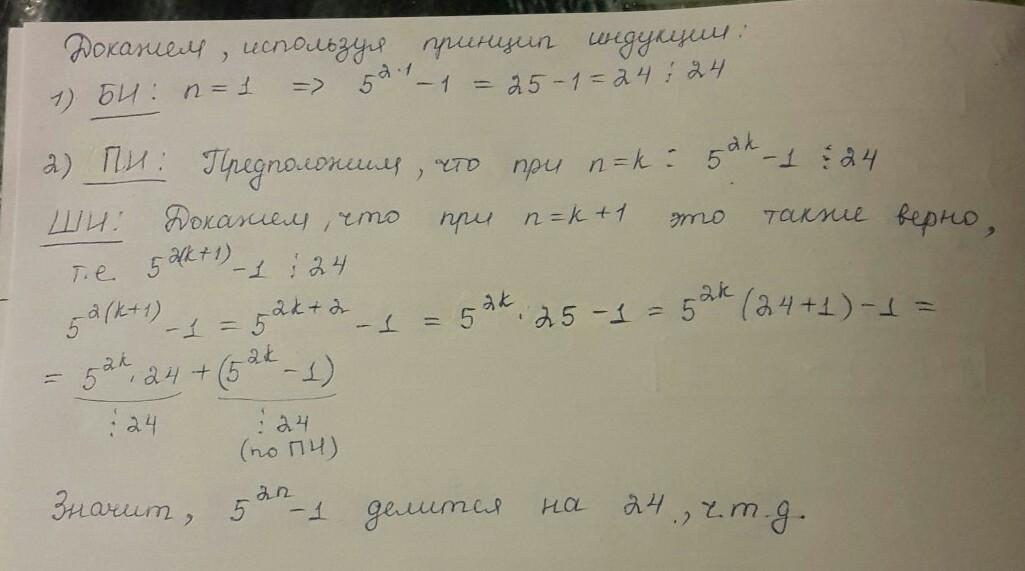 Докажем, используя принцип индукции:
1) БИ: n=1 => 5^{2·1} - 1 = 25 - 1 = 24 ⋮ 24
2) ПИ: Предположим, что при n=k : 5^{2k} - 1 ⋮ 24
ШИ: Докажем, что при n=k+1 это также верно,
т.е. 5^{2(k+1)} - 1 ⋮ 24
5^{2(k+1)} - 1 = 5^{2k+2} - 1 = 5^{2k} · 25 - 1 = 5^{2k} (24+1) - 1 =
= 5^{2k} · 24 + (5^{2k} - 1)
⋮ 24 ⋮ 24
(по ПИ)
Значит, 5^{2n} - 1 делится на 24, ч.т.д.